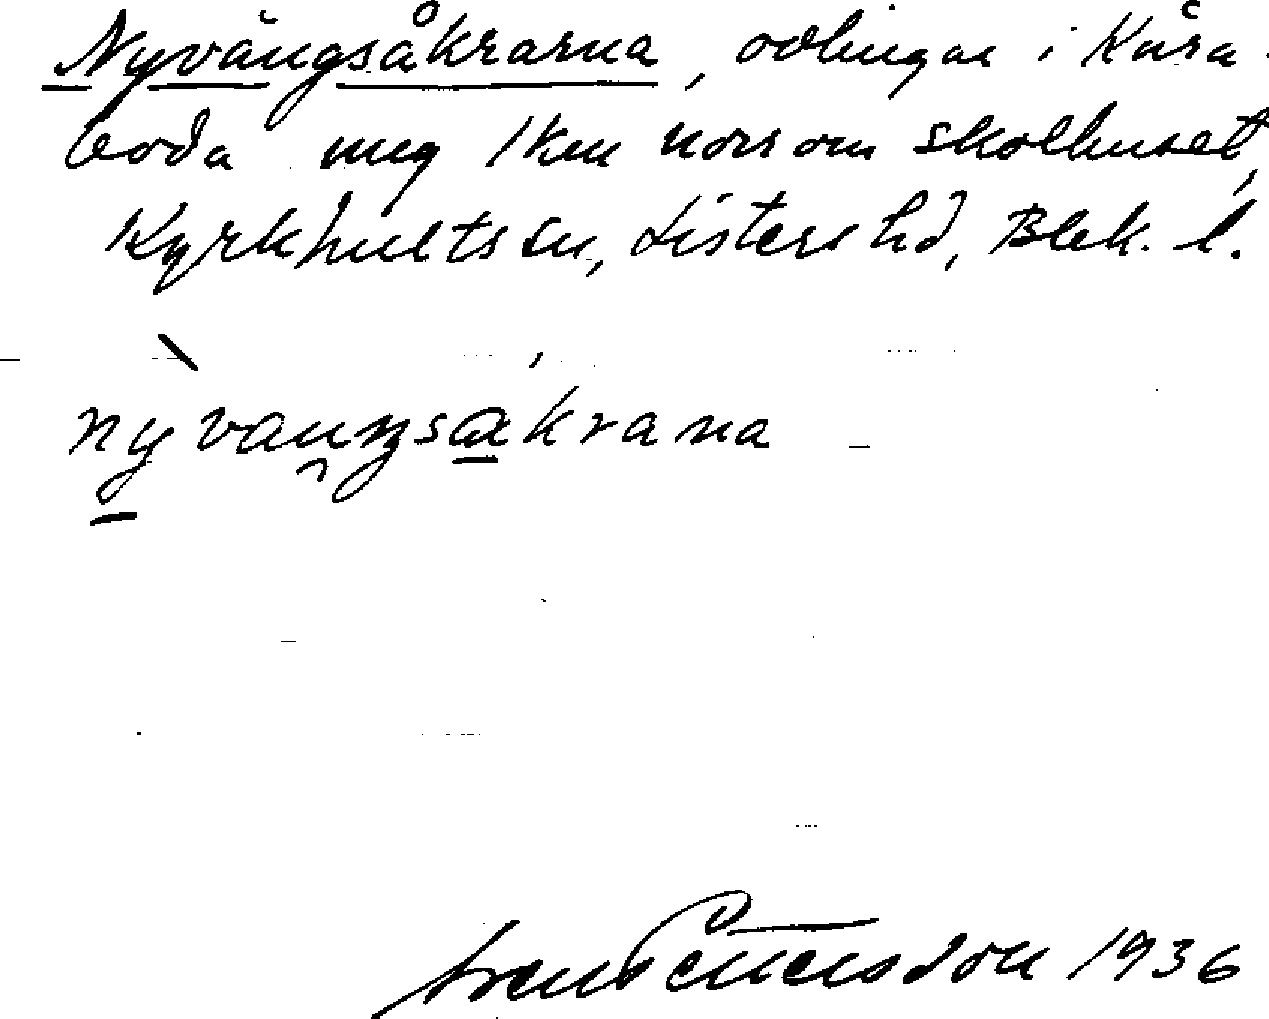 Nyvångsåkrarna, odlingar i Kåra-
boda ung 1 km norr om skolhuset,
Kyrkhults sn, Listers hd, Blek. l.
nyvaŋsakrana
Sven Pettersson 1936